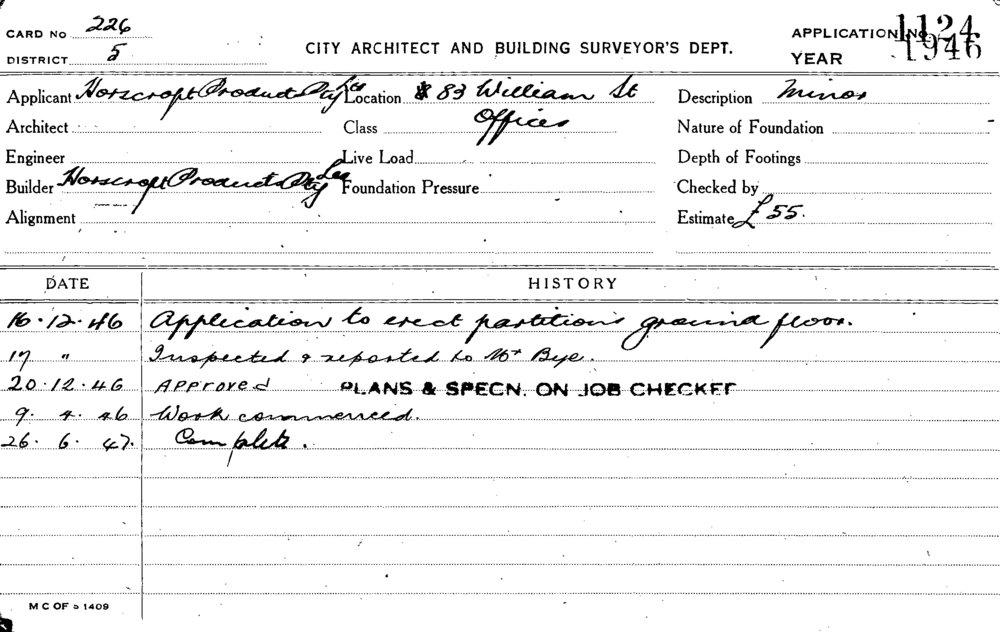 CARD No 226
APPLICATION No. 1124
DISTRICT 5
CITY ARCHITECT AND BUILDING SURVEYOR'S DEPT.
YEAR 1946
Applicant Horscroft Products Pty Location 83 William St Description Minor
Architect Class Offices Nature of Foundation
Engineer Live Load Depth of Footings
Builder Horscroft Products Pty Foundation Pressure Checked by
Alignment Estimate £55.
DATE HISTORY
16.12.46 Application to erect partitions ground floor.
17 " Inspected & reported to Mr Bye.
20.12.46 Approved PLANS & SPECN. ON JOB CHECKED
9. 4. 46 Work commenced.
26. 6. 47. Complete.
M C OF 1409